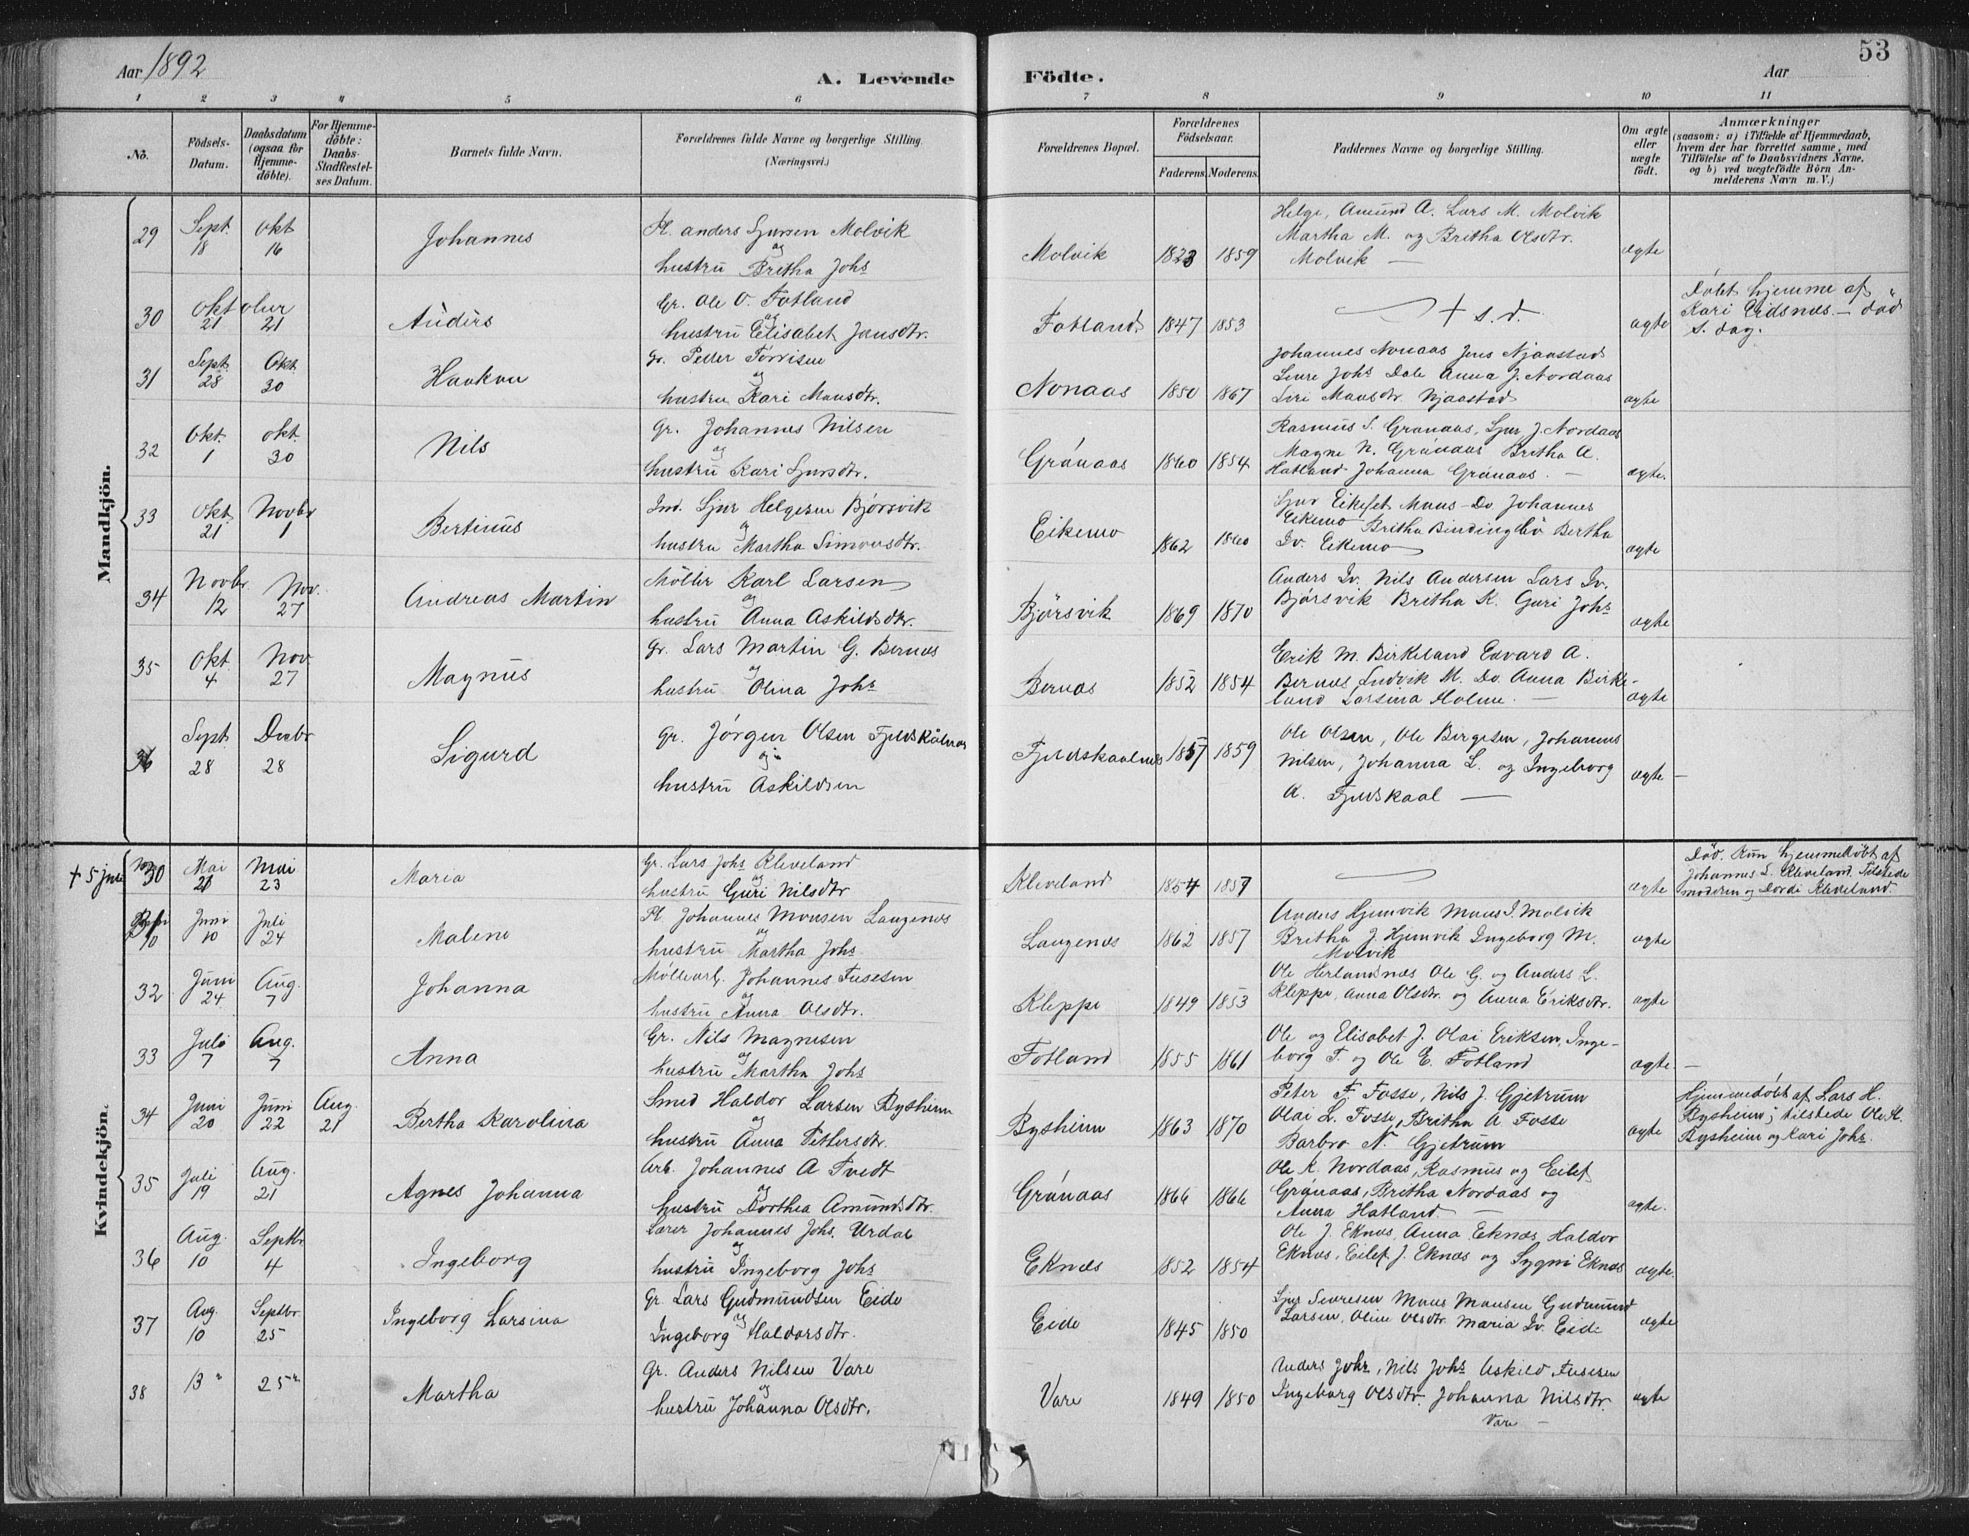 53
Aar 1892
A. Levende Födte.
Aar
1 2 3 4 5 6 7 8 9 10 11
No.
Födsels-Datum.
Daabsdatum (ogsaa for Hjemme-döbte).
For Hjemme-döbte: Daabs-Stadfæstel-ses Datum.
Barnets fulde Navn.
Forældrenes fulde Navne og borgerlige Stilling. (Næringsvei.)
Forældrenes Bopæl.
Forældrenes Födselsaar.
Faderens. Moderens.
Faddernes Navne og borgerlige Stilling.
Om ægte eller uægte födt.
Anmærkninger
(saasom: a) i Tilfælde af Hjemmedaab, hvem der har forrettet samme, med Tilföielse af to Daabsvidners Navne, og b) ved uægtefödte Börn An-melderens Navn m. V.)
Mandkjön.
29 Sept. 18 Okt 16 Johannes
Pl. Anders Sjursen Molvik
og
hustru Britha Johs
Molvik 1823 1859
Helge, Amund A. Lars M. Molvik
Martha M. og Britha Olsdtr.
Molvik —
ægte
30 Oktober 21 21 Anders
Gr. Ole O. Fotland
og
hustru Elisabet Jansdtr.
Fotland 1847 1853
+ s.d.
ægte
Döbt hjemme af
Kari Eidsnes. — död
s. dag.
31 Sept. 28 Okt. 30 Haakon
Gr. Peder
og
hustru Kari Monsdtr.
Nonaas 1850 1867
Johannes Nonaas Jens Njaastad
Johs Dale Anna J. Nordaas
Siri Mansdtr. Njaastad
ægte
32 Okt. 1 Okt. 30 Nils
Gr. Johannes Nilsen
og
hustru Kari Sjursdtr.
Grönaas 1860 1854
Rasmus S. Grönaas, Sjur J. Nordaas
Magne N. Grönaas Britha A.
Hatland Johanna Grönaas. —
ægte.
33 Okt. 21 Novbr 1 Bertinus
Ind. Sjur Helgesen Bjørsvik
og
hustru Martha Simonsdtr.
Eikemo 1862 1860
Sjur Eikefet Mons Do. Johannes
Eikemo Britha Bindingbö Bertha
Do. Eikemo
ægte
34 Novbr 12 Nov. 27 Andreas Martin
Möller Karl Larsen
og
hustru Anna Askildsdtr.
Bjørsvik 1869 1870
Anders Do. Nils Andersen Lars Do.
Bjørsvik Britha K. Guri Johs
ægte
35 Okt. 4 Nov 27 Magnus
Gr. Lars Martin G. Bernes
og
hustru Olina Johs
Bernes 1852 1854
Erik M. Birkeland Edvard A.
Bernes, Ludvik M. Do. Anna Birke-
land Larsina Holme. —
ægte
36 Sept. 28 Decbr 28 Sigurd
Gr. Jørgen Olsen Fjeldskålnes
og
hustru Askildsen
Fjeldskaalnes 1857 1859
Ole Olsen, Ole Birgesen, Johannes
Nilsen, Johanna L. og Ingeborg
A. Fjeldskaal —
ægte —
Kvindekjön.
+ 5 juli
No 30 Mai 21 Mai 23 Maria
Gr. Lars Johs Kleveland
og
hustru Guri Nilsdtr
Kleveland 1854 1857
ægte
Död. Kun hjemmedöbt af
Johannes L. Kleveland. Tilstede
moderen og Dordi Kleveland.
Juni 10 Juli 24 Malene
Pl. Johannes Monsen Langenes
og
hustru Martha Johs
Langenes 1862 1857
Anders Hjemvik Mons J. Molvik
Britha J. Hjemvik Ingeborg M.
Molvik
ægte
32 Juni 24 Aug. 7 Johanna
Möllearb. Johannes Fusesen
og
hustru Anna Olsdtr.
Kleppe 1849 1853
Ole Herlandsnes Ole G. og Anders L.
Kleppe, Anna Olsdtr. og Anna Eriksdtr.
ægte
33 Juli 7 Aug. 7 Anna
Gr. Nils Magnesen
og
hustru Martha Johs
Fotland 1855 1861
Ole og Elisabet J. Olai Eriksen, Inge-
borg T. og Ole E. Fotland
ægte —
34 Juni 20 Juni 22 Aug. 21 Bertha Karolina
Smed Haldor Larsen Bysheim
og
hustru Anna Pettersdtr.
Bysheim 1863 1870
Peter F. Fosse, Nils J. Gjetrum
Olai L. Fosse, Britha A. Fosse
Barbro N. Gjetrum
ægte
Hjemmedöbt af Lars H.
Bysheim; tilstede Ole H.
Bysheim og Kari Johs.
35 Juli 19 Aug. 21 Agnes Johanna
Arb. Johannes A Tvedt
og
hustru Dorthea Amundsdtr.
Grönaas 1866 1866
Ole K. Nordaas, Rasmus og Eilef
Grönaas, Britha Nordaas og
Anna Hatland. —
ægte.
36 Aug. 10 Septbr 4 Ingeborg
Lærer Johannes Johs. Urdal
og
hustru Ingeborg Johs
Eknes 1852 1854
Ole J. Eknes, Anna Eknes, Haldor
Eknes, Eilef J. Eknes og Sygni Eknes
ægte.
37 Aug. 10 Septbr. 25 Ingeborg Larsina
Gr. Lars Gudmundsen Eide
og
Ingeborg Haldorsdtr.
Eide 1845 1850
Sjur Sivresen Mons Monsen Gudmund
Larsen, Oline Olsdtr. Maria Do. Eide
ægte
38 13 " 25 " Martha
Gr. Anders Nilsen Vare
og
hustru Johanna Olsdtr.
Vare 1849 1850
Anders Johs, Nils Johs Askild Fusesen
Ingeborg Olsdtr. Johanna Nilsdtr.
Vare —
ægte